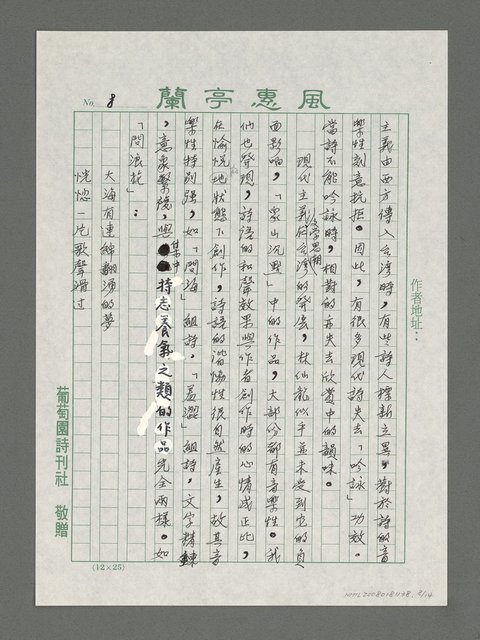 蘭亭惠風
No. 8
作者地址：
主義由西方傳入台灣時，有些詩人標新立異，對於詩的音
樂性刻意抗拒。因此，有很多現代詩失去「吟詠」功效。
當詩不能吟詠時，相對的亦失去欣賞中的韻味。
現代主義文學思潮在台灣的發展，林仙龍似乎並未受到它的負
面影响，「眾山沉默」中的作品，大部份都有音樂性。我
們也發現，詩語的和聲效果與作者創作時的心情成正比，
在愉悅地狀態下創作，詩語的諧愉性很自然產生，故其音
樂性特別強，如「問海」組詩，「羞澀」組詩，文字精鍊
，意象繁複，與集中持志養氣之類的作品完全兩樣。如
「問浪花」：
大海有連綿翻湧的夢
恍惚一片歌聲滑过
葡萄園詩刊社 敬贈
(12×25)